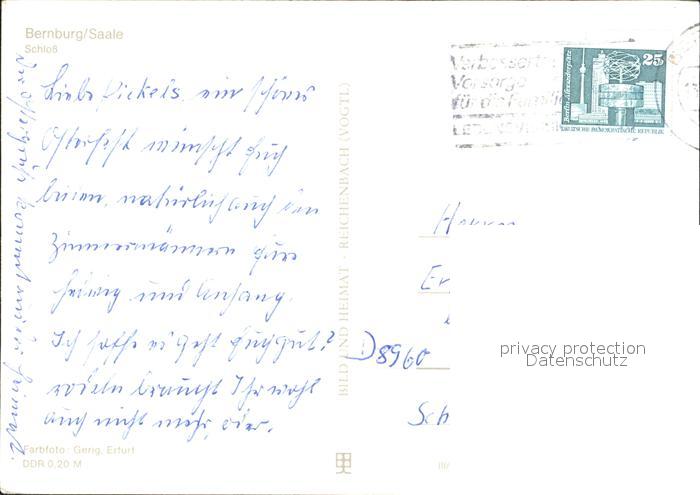 Bernburg/Saale
Schloß
Liebe Pickels, ein schönes
Osterfest wünscht Euch
beiden, natürlich auch den
Zimmermännern Eure
Hedwig und Anhang.
Ich hoffe es geht Euch gut?
rodeln braucht Ihr wohl
auch nicht mehr, oder.
Farbfoto: Gerig, Erfurt
DDR 0,20 M
BILD UND HEIMAT · REICHENBACH (VOGTL)
Verbesserte
Vorsorge
für die Familie
25
Berlin, Alexanderplatz
DEUTSCHE DEMOKRATISCHE REPUBLIK
Er
D 8960
Sch
privacy protection
Datenschutz